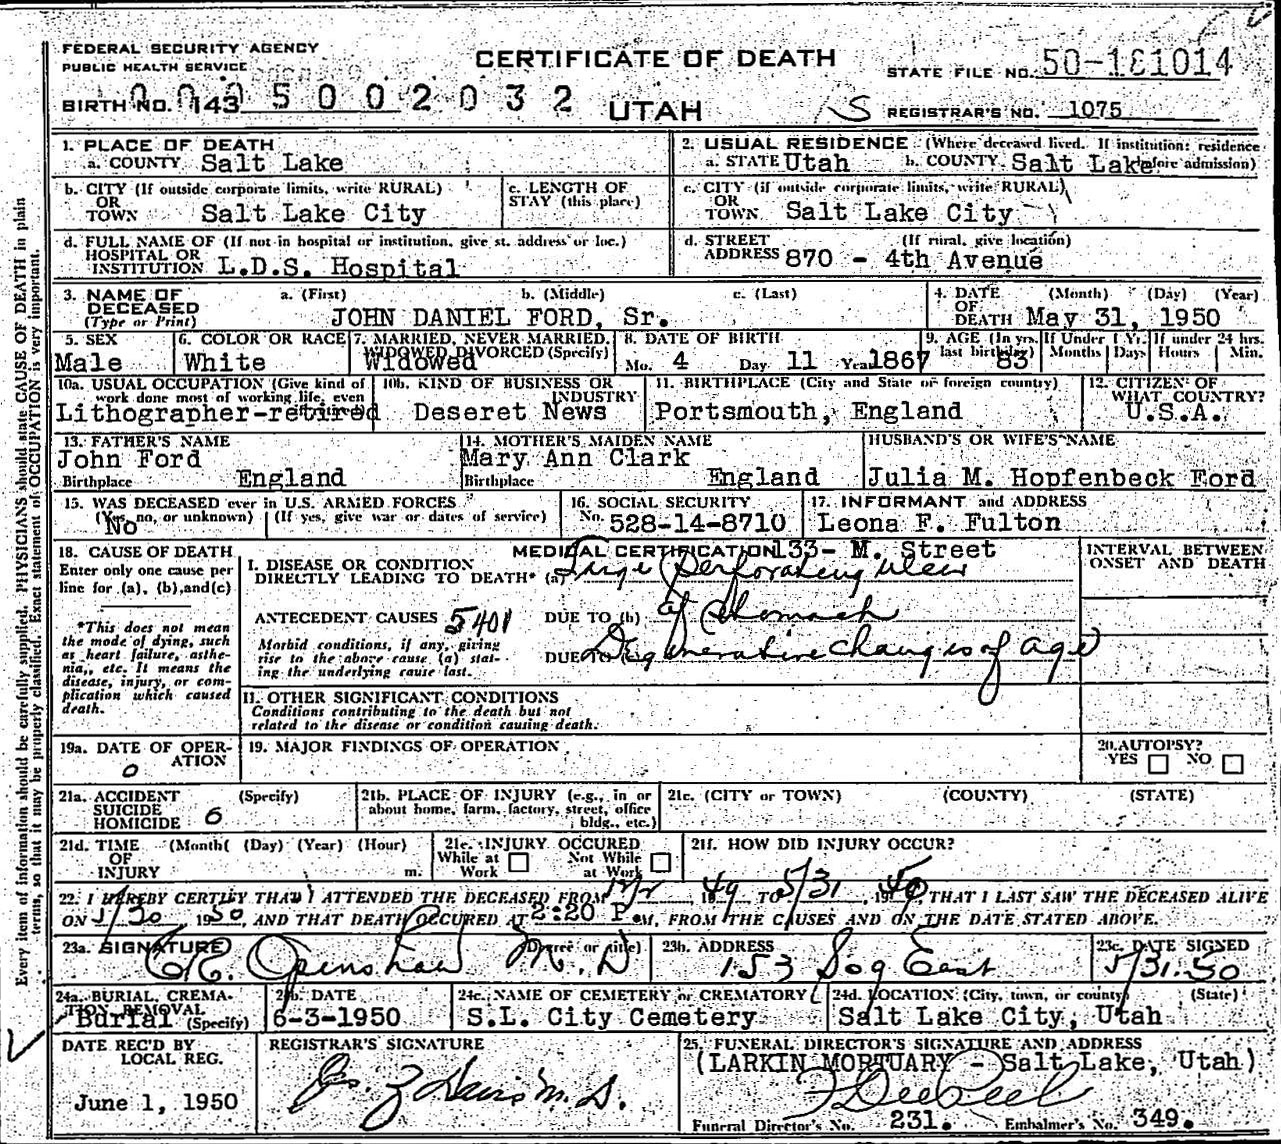 FEDERAL SECURITY AGENCY
PUBLIC HEALTH SERVICE
CERTIFICATE OF DEATH
STATE FILE NO. 50-181014
BIRTH NO. 143 0 0 0 5 0 0 2 0 3 2
UTAH
S
REGISTRAR'S NO. 1075
1. PLACE OF DEATH
a. COUNTY Salt Lake
2. USUAL RESIDENCE (Where deceased lived. If institution: residence before admission)
a. STATE Utah b. COUNTY Salt Lake
b. CITY (If outside corporate limits, write RURAL)
OR
TOWN Salt Lake City
c. LENGTH OF
STAY (this place)
c. CITY (if outside corporate limits, write RURAL)
OR
TOWN Salt Lake City
d. FULL NAME OF (If not in hospital or institution, give st. address or loc.)
HOSPITAL OR
INSTITUTION L.D.S. Hospital
d. STREET (If rural, give location)
ADDRESS 870 - 4th Avenue
3. NAME OF
DECEASED
(Type or Print)
a. (First) b. (Middle) c. (Last)
JOHN DANIEL FORD, Sr.
4. DATE (Month) (Day) (Year)
OF
DEATH May 31, 1950
5. SEX
Male
6. COLOR OR RACE
White
7. MARRIED, NEVER MARRIED,
WIDOWED, DIVORCED (Specify)
Widowed
8. DATE OF BIRTH
Mo. 4 Day 11 Year 1867
9. AGE (In yrs.
last birthday) 83
If Under 1 Yr.
Months Days
If under 24 hrs.
Hours Min.
10a. USUAL OCCUPATION (Give kind of
work done most of working life, even
Lithographer-retired
10b. KIND OF BUSINESS OR
INDUSTRY
Deseret News
11. BIRTHPLACE (City and State or foreign country)
Portsmouth, England
12. CITIZEN OF
WHAT COUNTRY?
U.S.A.
13. FATHER'S NAME
John Ford
Birthplace England
14. MOTHER'S MAIDEN NAME
Mary Ann Clark
Birthplace England
HUSBAND'S OR WIFE'S NAME
Julia M. Hopfenbeck Ford
15. WAS DECEASED ever in U.S. ARMED FORCES
(Yes, no, or unknown) (If yes, give war or dates of service)
No
16. SOCIAL SECURITY
No. 528-14-8710
17. INFORMANT and ADDRESS
Leona F. Fulton
133- M. Street
18. CAUSE OF DEATH
Enter only one cause per
line for (a), (b), and (c)
*This does not mean
the mode of dying, such
as heart failure, asthe-
nia, etc. It means the
disease, injury, or com-
plication which caused
death.
MEDICAL CERTIFICATION
I. DISEASE OR CONDITION
DIRECTLY LEADING TO DEATH* (a) Large perforating ulcer
ANTECEDENT CAUSES 5401 DUE TO (b) of stomach
Morbid conditions, if any, giving
rise to the above cause (a) stat-
ing the underlying cause last.
DUE TO Degenerative changes of age
INTERVAL BETWEEN
ONSET AND DEATH
11. OTHER SIGNIFICANT CONDITIONS
Conditions contributing to the death but not
related to the disease or condition causing death.
19a. DATE OF OPER-
ATION
0
19. MAJOR FINDINGS OF OPERATION
20. AUTOPSY?
YES NO
21a. ACCIDENT (Specify)
SUICIDE
HOMICIDE 6
21b. PLACE OF INJURY (e.g., in or
about home, farm, factory, street, office
bldg., etc.)
21c. (CITY or TOWN) (COUNTY) (STATE)
21d. TIME (Month( (Day) (Year) (Hour)
OF
INJURY m.
21e. INJURY OCCURED
While at Work Not While at Work
21f. HOW DID INJURY OCCUR?
22. I HEREBY CERTIFY THAT I ATTENDED THE DECEASED FROM 19 49 TO 5/31 19 50 THAT I LAST SAW THE DECEASED ALIVE
ON 5/30 1950, AND THAT DEATH OCCURED AT 2:20 P.M, FROM THE CAUSES AND ON THE DATE STATED ABOVE.
23a. SIGNATURE (Degree or title)
Openshaw M.D
23b. ADDRESS
153 So East
23c. DATE SIGNED
5/31.50
24a. BURIAL, CREMA-
TION, REMOVAL
Burial (Specify)
24b. DATE
6-3-1950
24c. NAME OF CEMETERY or CREMATORY
S.L. City Cemetery
24d. LOCATION (City, town, or county) (State)
Salt Lake City, Utah
DATE REC'D BY
LOCAL REG.
June 1, 1950
REGISTRAR'S SIGNATURE
M.D.
25. FUNERAL DIRECTOR'S SIGNATURE AND ADDRESS
(LARKIN MORTUARY - Salt Lake, Utah)
Funeral Director's No. 231. Embalmer's No. 349.
Every item of information should be carefully supplied. PHYSICIANS should state CAUSE OF DEATH in plain
terms, so that it may be properly classified. Exact statement of OCCUPATION is very important.